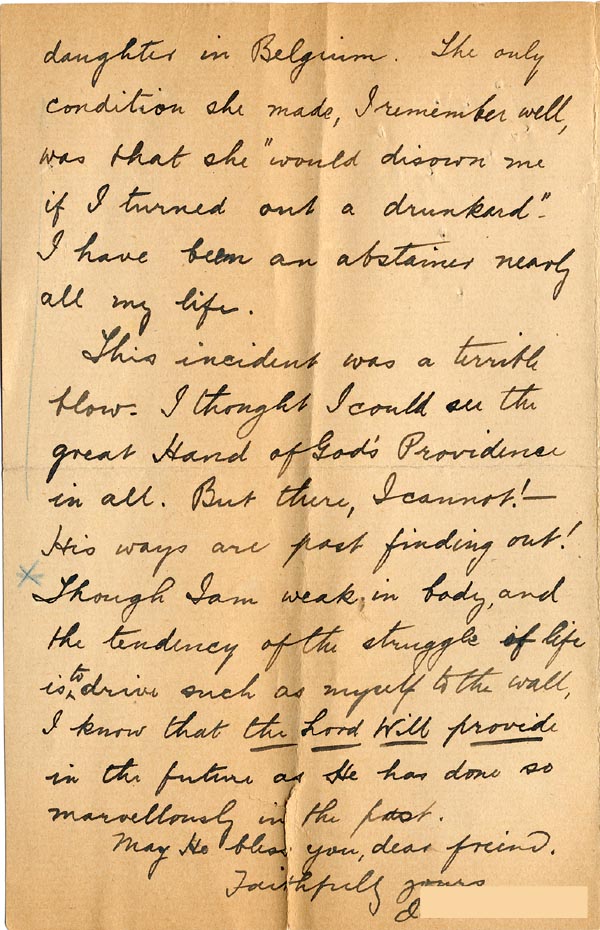 daughter in Belgium. The only
condition she made, I remember well,
was that she "would disown me
if I turned out a drunkard".
I have been an abstainer nearly
all my life.
This incident was a terrible
blow. I thought I could see the
great Hand of God's Providence
in all. But there, I cannot! —
His ways are past finding out!
Though I am weak in body, and
the tendency of the struggle of life
is to drive such as myself to the wall,
I know that the Lord Will provide
in the future as He has done so
marvellously in the past.
May He bless you, dear friend.
Faithfully yours